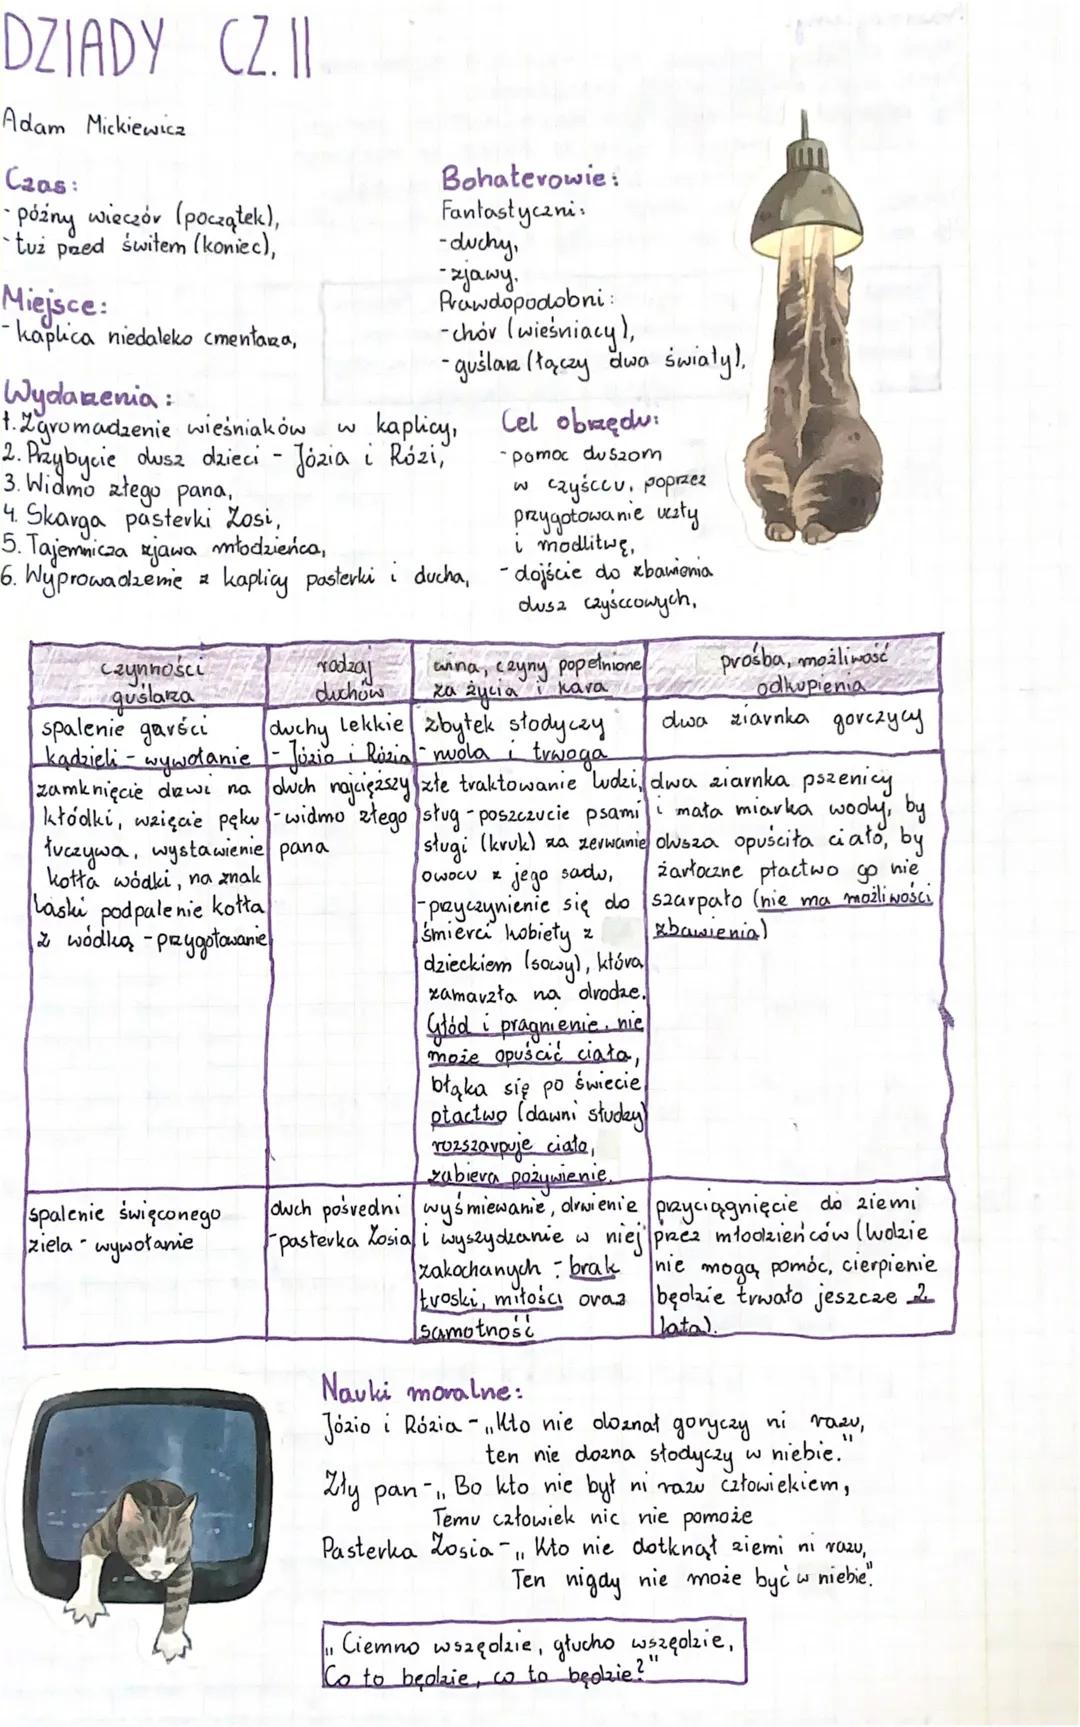 DZIADY CZ. II
Adam Mickiewicz
Czas:
- późny wieczór (początek),
- tuż przed świtem (koniec),
Miejsce:
- kaplica niedaleko cmentarza,
Bohaterowie:
Fantastyczni:
- duchy,
- zjawy.
Prawdopodobni:
- chór (wieśniacy),
- guślarz (łączy dwa światy).
Wydarzenia:
1. Zgromadzenie wieśniaków w kaplicy,
2. Przybycie dusz dzieci - Józia i Rózi,
3. Widmo złego pana,
4. Skarga pasterki Zosi,
5. Tajemnicza zjawa młodzieńca,
6. Wyprowadzenie z kaplicy pasterki i ducha,
Cel obrzędu:
- pomoc duszom
w czyśccu, poprzez
przygotowanie uczty
i modlitwę,
- dojście do zbawienia
dusz czyśccowych,
czynności
guślarza
rodzaj
duchów
wina, czyny popełnione
za życia i kara
prośba, możliwość
odkupienia
spalenie garści
kądzieli - wywołanie
duchy lekkie
- Józio i Rózia
zbytek słodyczy
- nuda i trwoga
dwa ziarnka gorczycy
zamknięcie drzwi na
kłódki, wzięcie pęku
łuczywa, wystawienie
kotła wódki, na znak
laski podpalenie kotła
z wódką - przygotowanie
duch najcięższy
- widmo złego
pana
złe traktowanie ludzi,
sług - poszczucie psami
sługi (kruk) za zerwanie
owocu z jego sadu,
- przyczynienie się do
śmierci kobiety z
dzieckiem (sowy), która
zamarzła na drodze.
Głód i pragnienie, nie
może opuścić ciała,
błąka się po świecie,
ptactwo (dawni słudzy)
rozszarpuje ciało,
zabiera pożywienie.
dwa ziarnka pszenicy
i mała miarka wody, by
dusza opuściła ciało, by
żarłoczne ptactwo go nie
szarpało (nie ma możliwości
zbawienia)
spalenie święconego
ziela - wywołanie
duch pośredni
- pasterka Zosia
wyśmiewanie, drwienie
i wyszydzanie w niej
zakochanych - brak
troski, miłości oraz
samotność
przyciągnięcie do ziemi
przez młodzieńców (ludzie
nie mogą pomóc, cierpienie
będzie trwało jeszcze 2
lata).
Nauki moralne:
Józio i Rózia - „Kto nie doznał goryczy ni razu,
ten nie dozna słodyczy w niebie."
Zły pan - „Bo kto nie był ni razu człowiekiem,
Temu człowiek nic nie pomoże
Pasterka Zosia - „Kto nie dotknął ziemi ni razu,
Ten nigdy nie może być w niebie."
„Ciemno wszędzie, głucho wszędzie,
Co to będzie, co to będzie?"